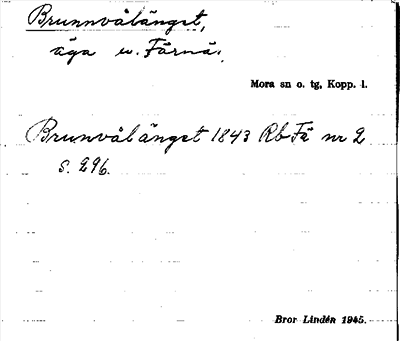 Brunnvålänget,
äga u. Färnä.
Mora sn o. tg, Kopp. l.
Brunvålänget 1843 Rb Fä nr 2
s. 296.
Bror Lindén 1945.